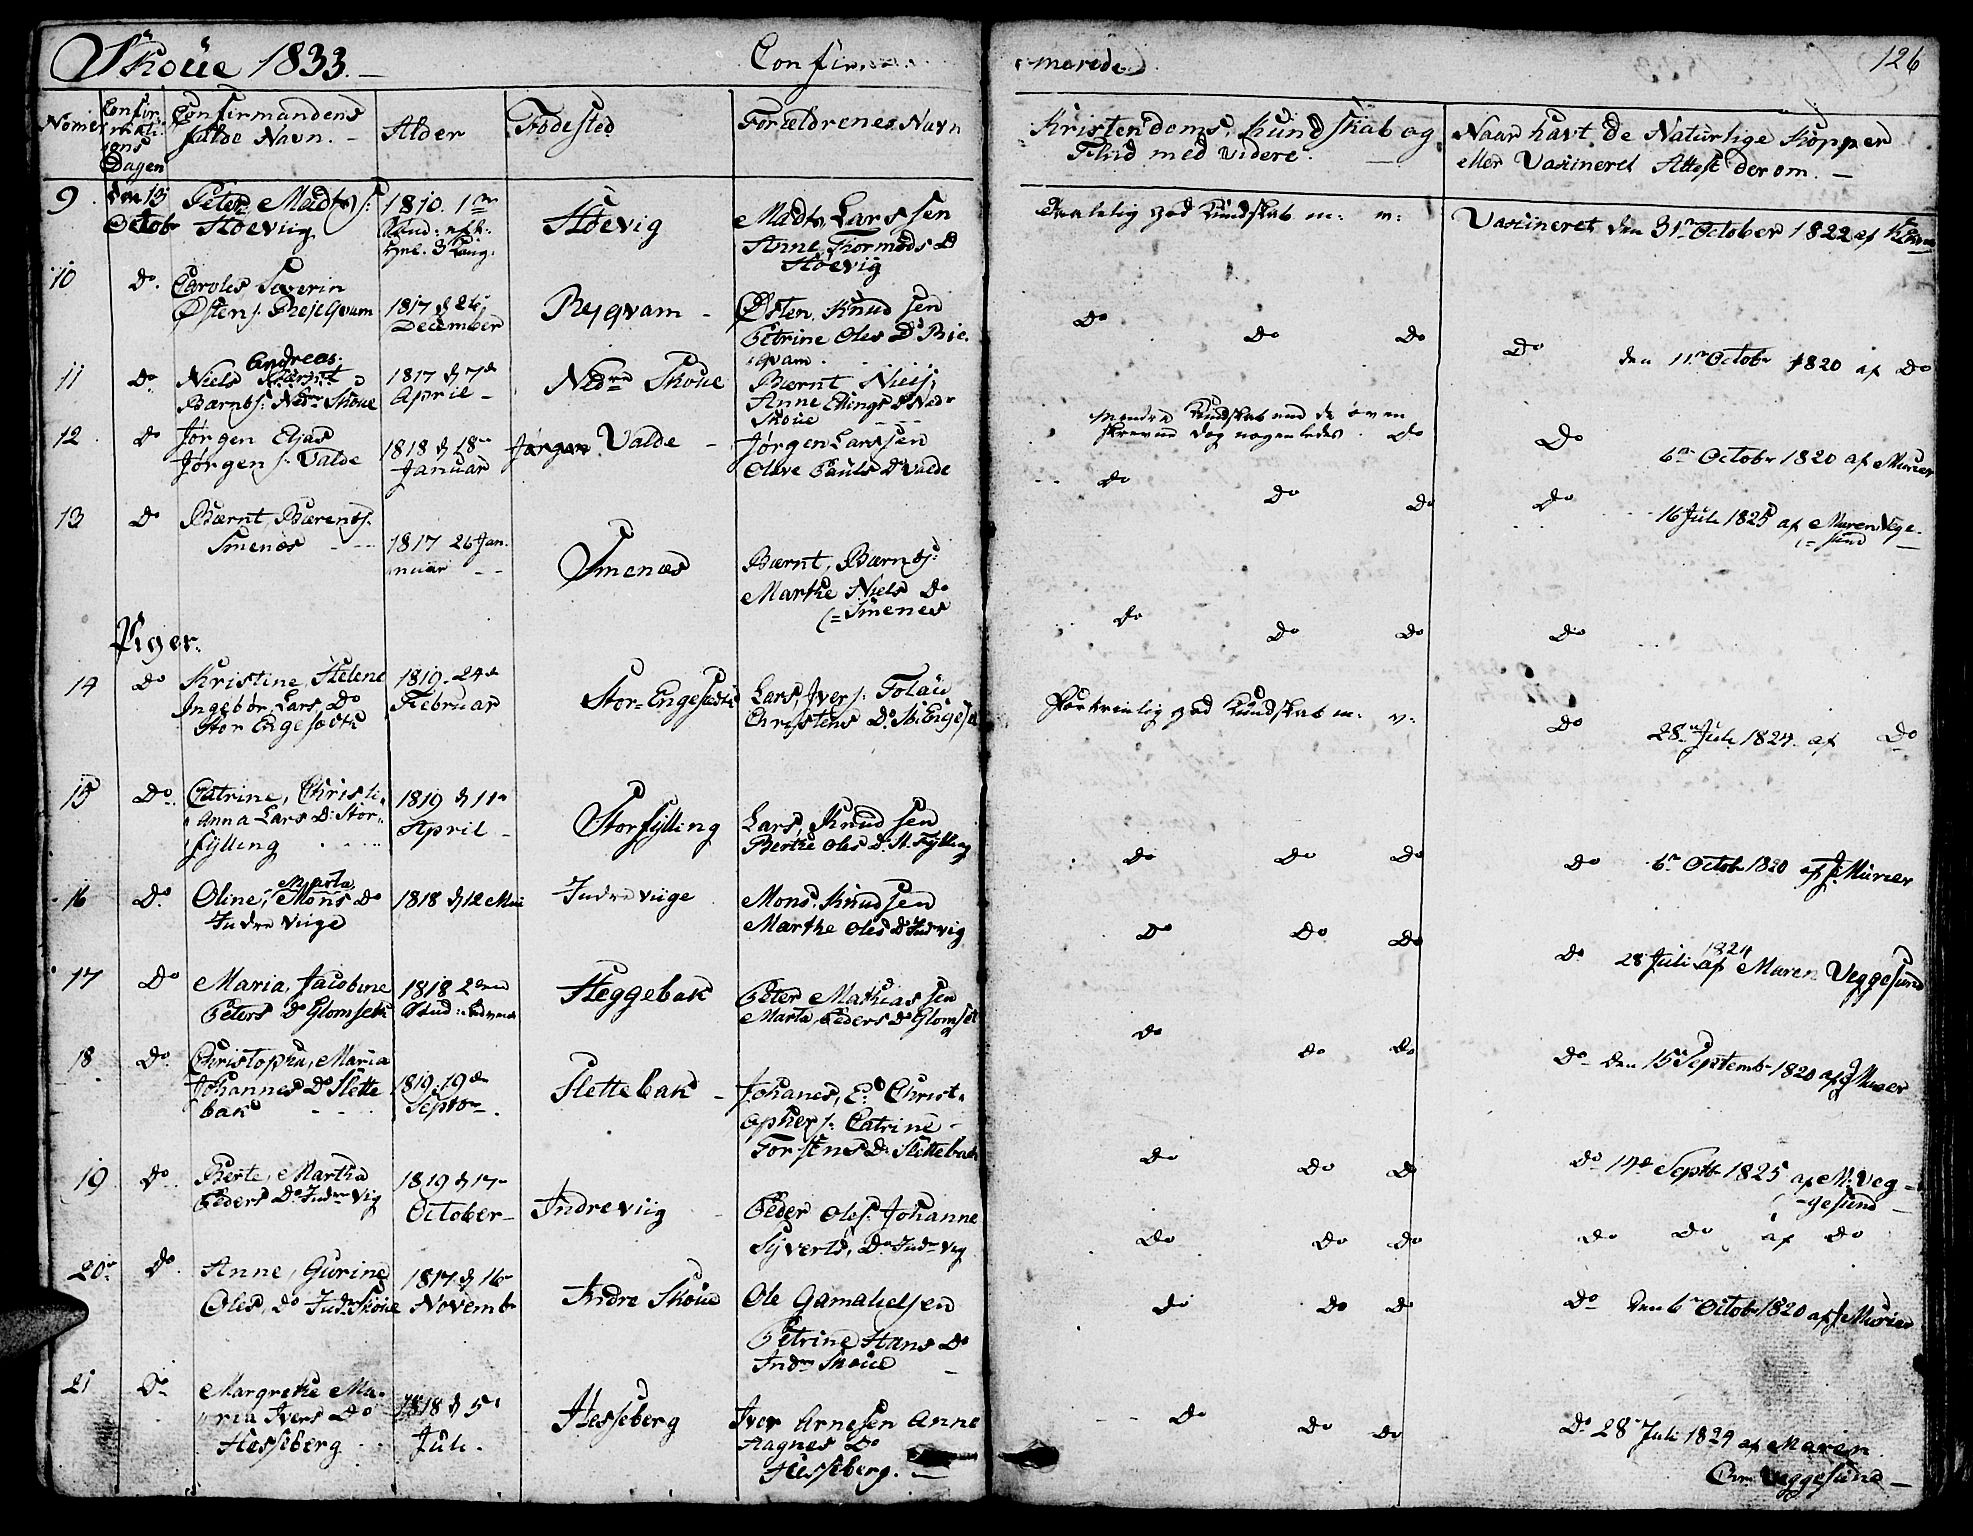 Skoue 1833. Confir merede 126
Nomer Confirmations Dagen Confirmandens fulde Navn. Alder Fødested Forældrenes Navn Kristendoms, Kundskab og Flid med videre. Naar havt de Naturlige Kopper eller Vaxineret Attest derom.
9 den 13 Octob Peter Madts s: Høeviig 1810. Høevig Madts Larssen
Anne Thormods D
Høevig
god Kundskab m: v: Vaxineret den 31te October 1822 af
10 Do. Carolus Severin
Østens s: Rejeqvam 1817 d 26
December Rejqvam Østen Knudsen
Petrine Oles D Rie
qvam
Do Do Do Do den 11te Octobr 1820 af Do
11 Do Niels Andreas
Bærnts: Nedre Skoue 1817 d 7de
April Nedre Skoue Bærnt Niels s:
Anne Ellings D Nedr
Skoue
Mindre Kundskab end de oven
skrevne dog nogenledes. Do Do 6te Octobr 1820 af Murer
12 Do Jørgen Elias
Jørgen s: Valde 1818 d 18de
Januar Valde Jørgen Larssen
Olave Pauls D Valde
Do Do Do Do 16 Juli 1825 af Maren Vege
sund
13 Do Bærnt, Bærents s.
Smenes 1817 26 Jan
nuar Smenæs Bærnt, Bærnts s:
Marthe Niels Do
Smenes
Do Do Do Do
Piger.
14 Do Kristine, Helene
Ingebor, Lars, Do
Stor Engesæth 1819. 24de
Februar Stor-Engesæth Lars, Ivers s: Folau
Christens D. St. Engesæ
god Kundskab m: v: Do 28de Juli 1824. af Do
15 Do. Catrine, Christi
anna Lars D: Stor
fylling 1819 d 11te
April Storfylling Lars, Knudsen
Berthe Oles D. St. Fylling
Do Do Do Do 6te Octob 1820 af J. Murer
16 Do. Oline, Marta Mons Do
Indre Viige 1818 d 12 Mai Indre Viige Mons. Knudsen
Marthe Oles D Indvig
Do Do Do Do 28 Juli 1824 af Maren Veggesund
17 Do Maria, Jacobine
Peters D Glomseth 1818 Heggebak Peter Mathiassen
Marta, Peders D Glomset
Do Do Do Do den 15 Septemb 1820 af J Murer
18 Do. Christopha, Maria
Johannes D. Slette
bak 1819. 19de
Septbr. Slettebak Johanes, E. Christ
opher s: Catrine
Torstens D. Slettebak
Do Do Do Do 14de Septb 1825 af M. Veg
gesund
19 Do Berte, Martha
Peders D. Indre Vig 1819 d 17
October Indreviig Peder Ols s: Johanne
Syverts, D. Indr Vig
Do Do Do Do Do af Do
20. Do. Anne, Gurine
Oles, Do Indr Skoue 1817 d 16
Novemb Indre Skoue Ole Gamalielsen
Petrine Hans Do
Indr Skoue
Do Do Do Do den 6te Octob 1820 af J. Murer
21 Do Margrethe Ma
ria Ivers Do
Hesseberg 1818 d 5te
Juli. Hesseberg Iver Arnesen Anne
Aagnes Do
Hesseberg.
Do Do Do Do 28 Juli 1824 af Maren
Veggesund